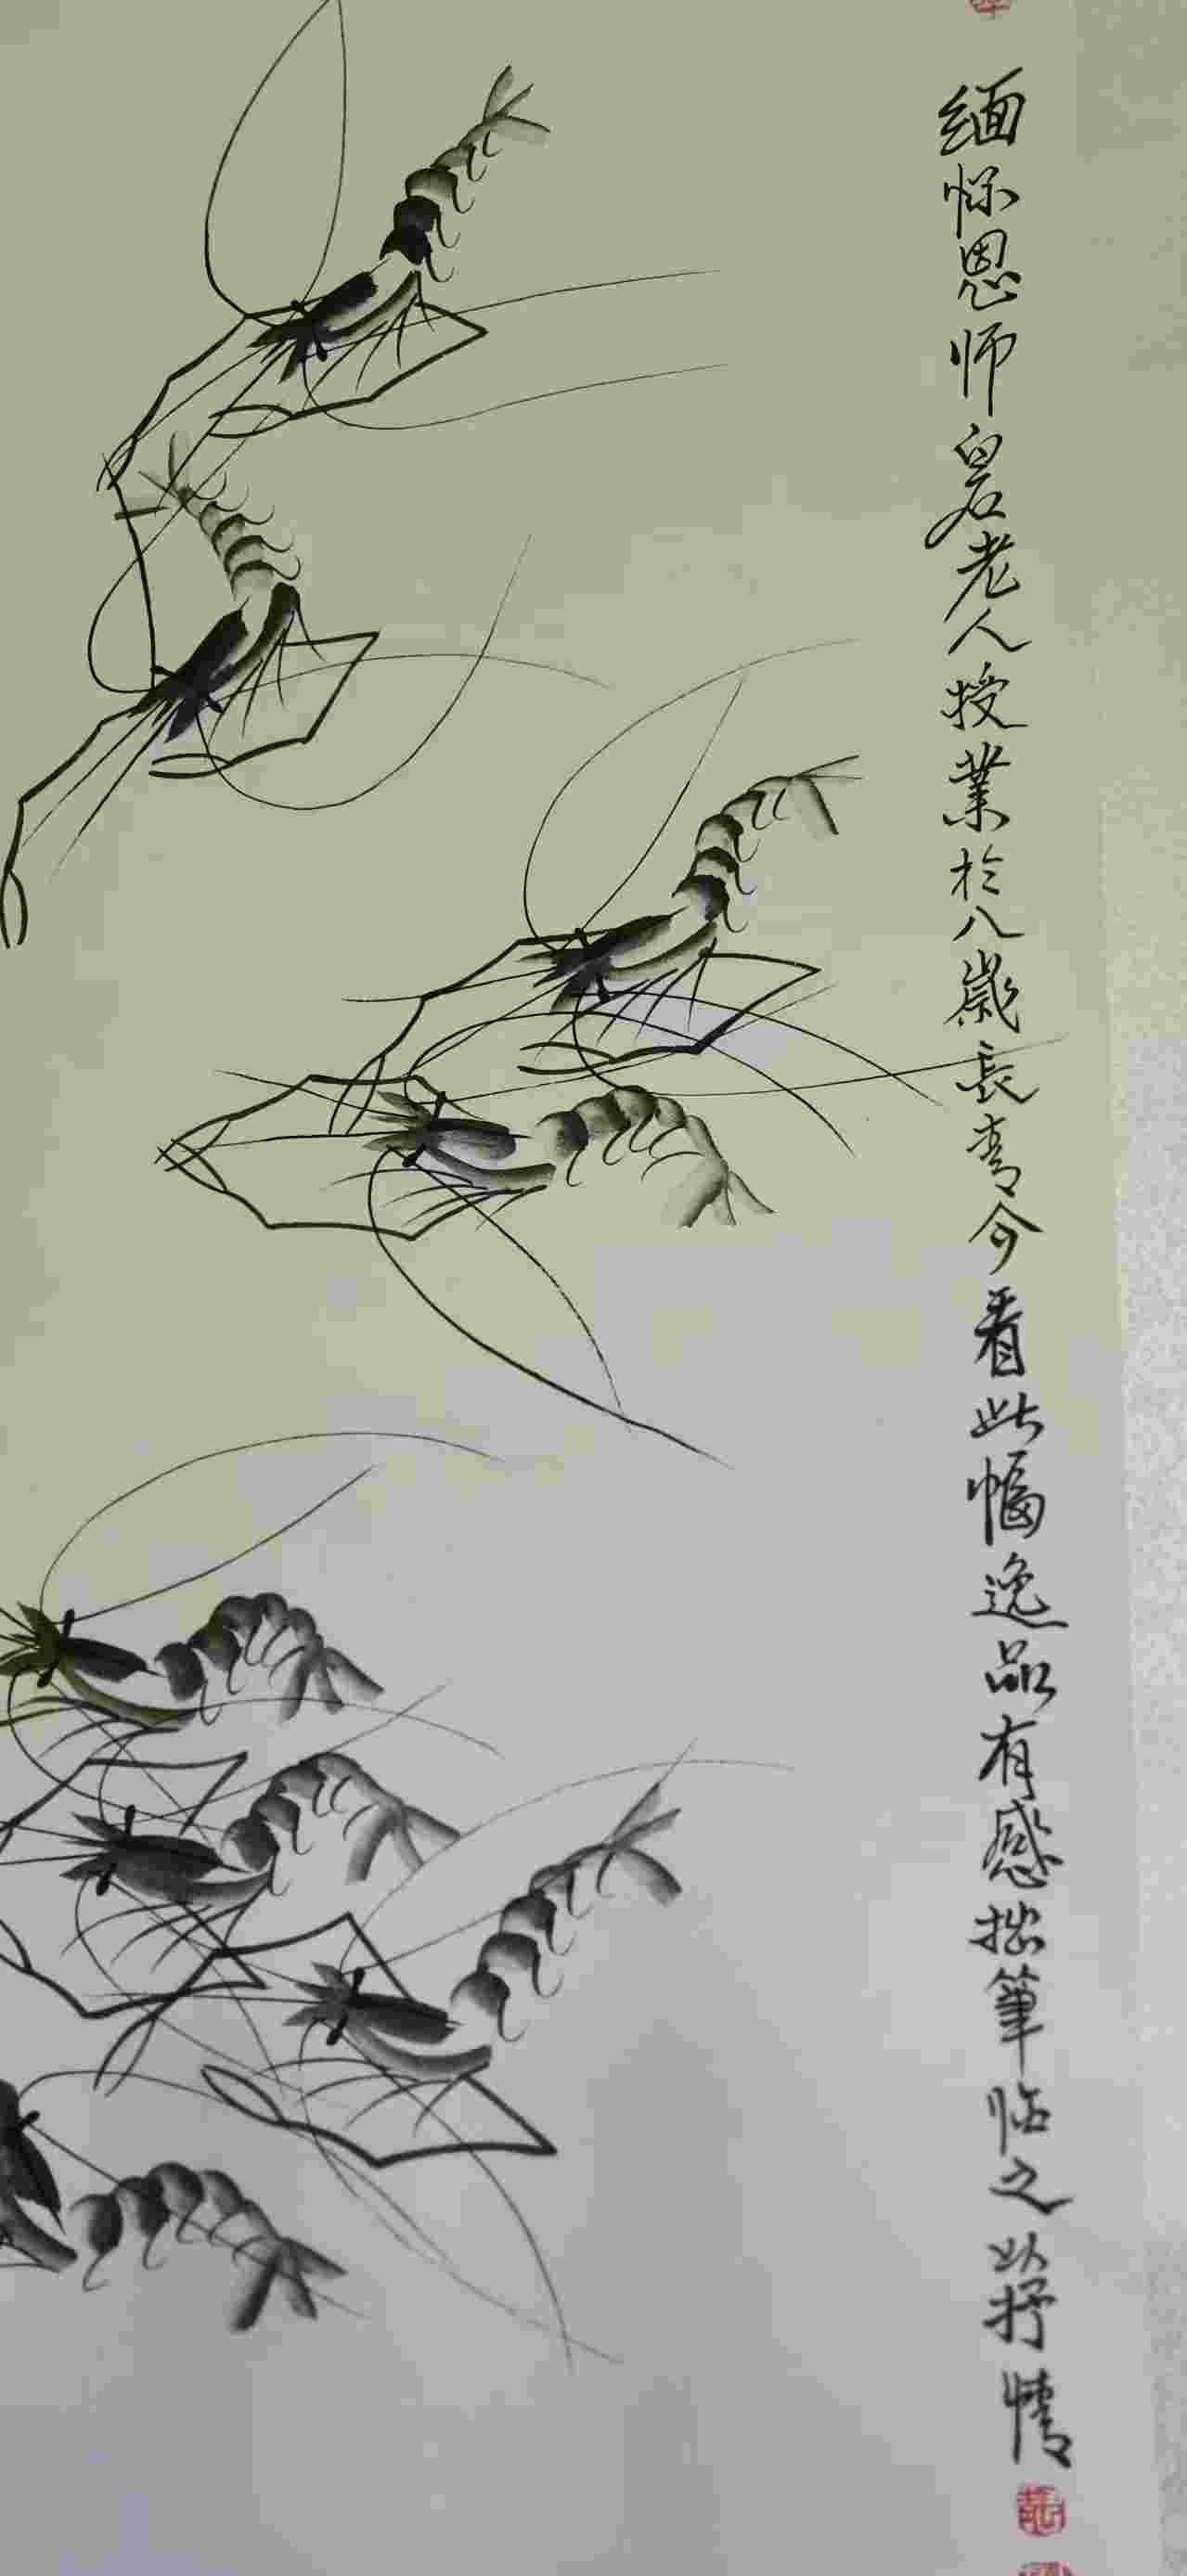 缅怀恩师白石老人授業於八歲長青今看此幅逸品有感拙筆临之以抒情